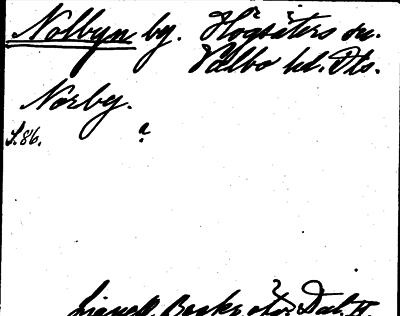 Nolbyn by. Högsäters sn.
Valbo hd. Dls.
Norby.
S. 86. ?
Lignell, Beskr. öfver Dal. II.